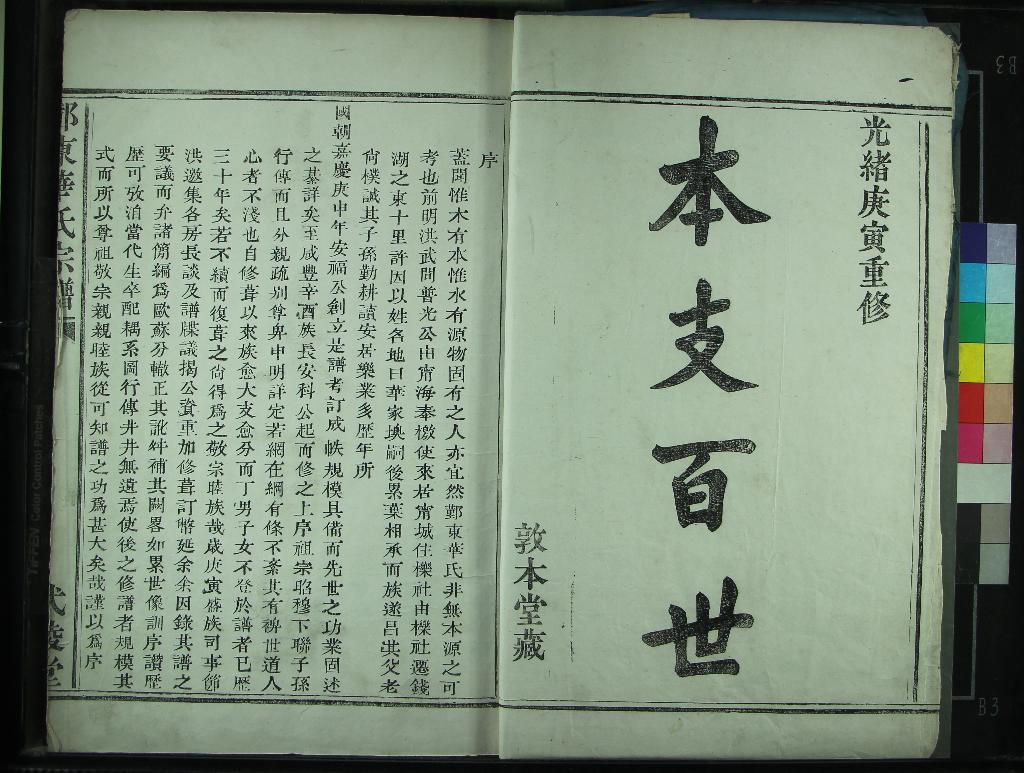 光緒庚寅重修
本支百世
敦本堂藏
序
蓋聞惟木有本惟水有源物固有之人亦宜然鄞東華氏非無本源之可
考也前明洪武間普光公由甯海奉檄使來居甯城住櫟社由櫟社遷錢
湖之東十里許因以姓名地曰華家墺嗣後累葉相承而族遂昌其父老
尙樸誠其子孫勤耕讀安居樂業多歷年所
國朝嘉慶庚申年安福公創立是譜考訂成帙規模具備而先世之功業固述
之綦詳矣至咸豐辛酉族長安科公起而修之上序祖宗昭穆下聯子孫
行傳而且分親疏別尊卑申明詳定若網在綱有條不紊其有裨世道人
心者不淺也自修葺以來族愈大支愈分而丁男子女不登於譜者已歷
三十年矣若不續而復葺之尙得爲之敬宗睦族哉歲庚寅蔟族司事節
洪邀集各房長談及譜牒議揭公資重加修葺訂幣延余余因錄其譜之
要議而弁諸簡編爲歐蘇分轍正其訛舛補其闕畧如累世像訓序讚歷
歷可攷洎當代生卒配耦系圖行傳井井無遺焉使後之修譜者規模其
式而所以尊祖敬宗親親睦族從可知譜之功爲甚大矣哉謹以爲序
鄞東華氏宗譜